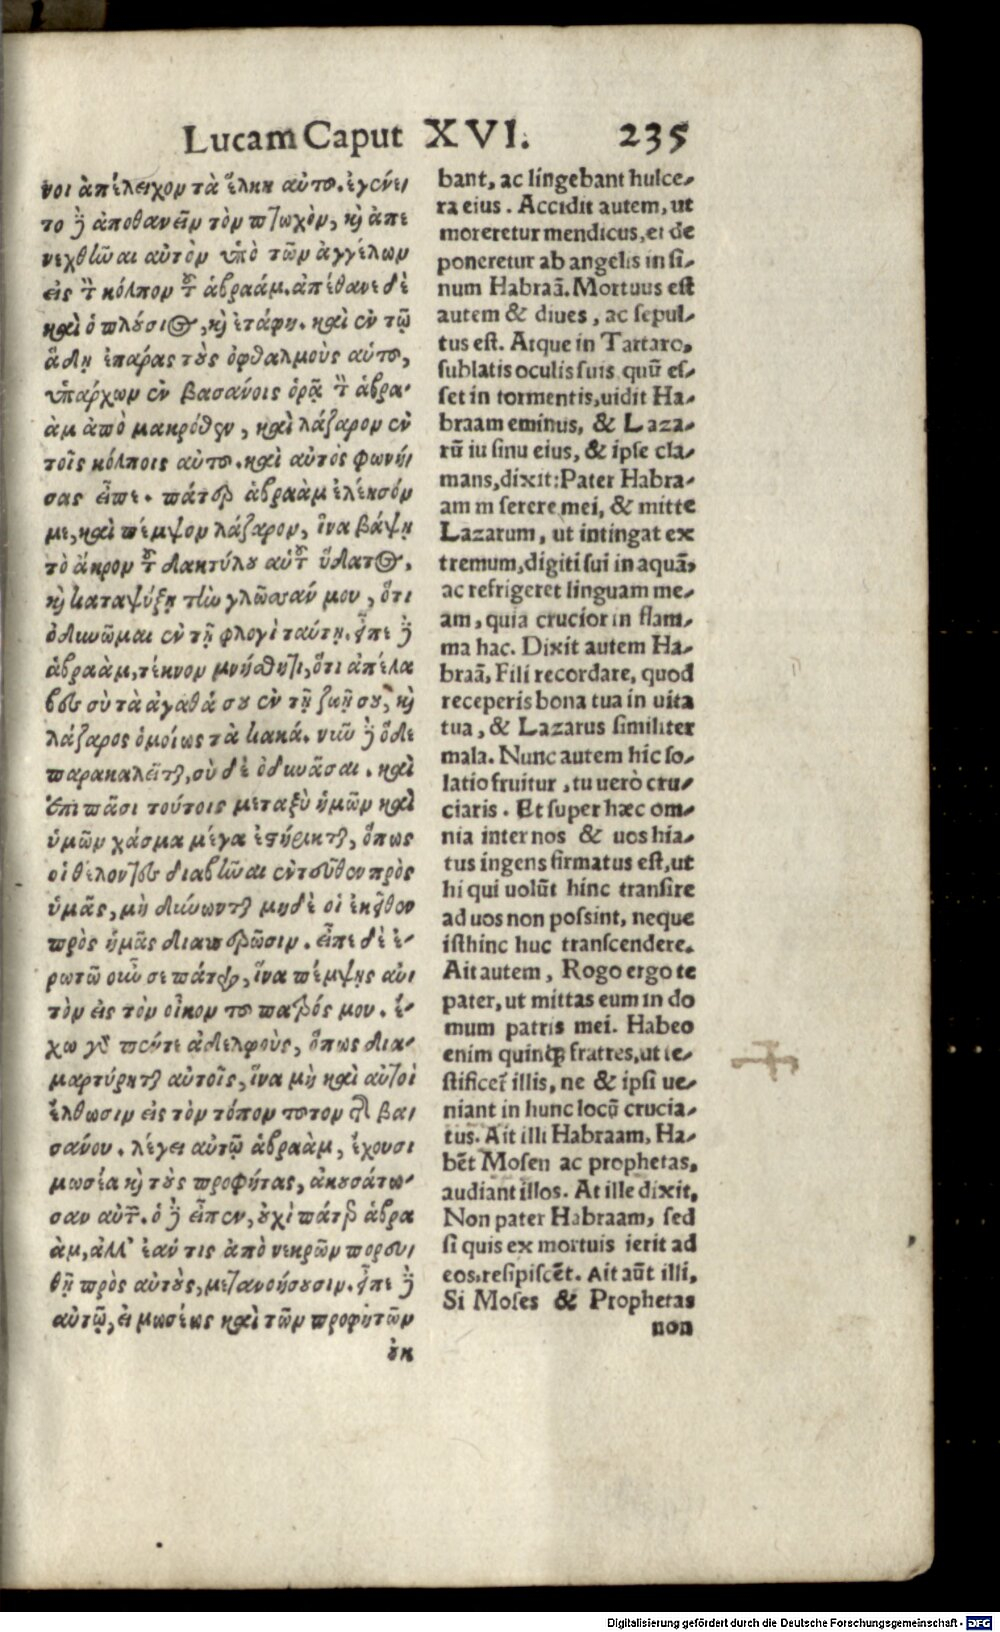 Lucam Caput XVI. 235
νοι ἀπέλειχον τὰ ἕλκη αὐτοῦ. ἐγένε-
το δὲ ἀποθανεῖν τὸν πτωχὸν, καὶ ἀπε
νεχθῆναι αὐτὸν ὑπὸ τῶν ἀγγέλων
εἰς τὸν κόλπον τοῦ ἀβραάμ. ἀπέθανε δὲ
καὶ ὁ πλούσιος, καὶ ἐτάφη. καὶ ἐν τῷ
ᾅδῃ ἐπάρας τοὺς ὀφθαλμοὺς αὐτοῦ,
ὑπάρχων ἐν βασάνοις ὁρᾷ τὸν ἀβρα-
ὰμ ἀπὸ μακρόθεν, καὶ λάζαρον ἐν
τοῖς κόλποις αὐτοῦ. καὶ αὐτὸς φωνή-
σας εἶπε. πάτερ ἀβραὰμ ἐλέησόν
με, καὶ πέμψον λάζαρον, ἵνα βάψῃ
τὸ ἄκρον τοῦ δακτύλου αὐτοῦ ὕδατος,
καὶ καταψύξῃ τὴν γλῶσσάν μου, ὅτι
ὀδυνῶμαι ἐν τῇ φλογὶ ταύτῃ. εἶπε δὲ
ἀβραὰμ, τέκνον μνήσθητι, ὅτι ἀπέλα
βες σὺ τὰ ἀγαθά σου ἐν τῇ ζωῇ σου, καὶ
λάζαρος ὁμοίως τὰ κακά. νῦν δὲ ὅδε
παρακαλεῖται, σὺ δὲ ὀδυνᾶσαι. καὶ
ἐπὶ πᾶσι τούτοις μεταξὺ ἡμῶν καὶ
ὑμῶν χάσμα μέγα ἐστήρικται, ὅπως
οἱ θέλοντες διαβῆναι ἐντεῦθεν πρὸς
ὑμᾶς, μὴ δύνωνται μηδὲ οἱ ἐκεῖθεν
πρὸς ἡμᾶς διαπερῶσιν. εἶπε δὲ ἐ-
ρωτῶ οὖν σε πάτερ, ἵνα πέμψῃς αὐ-
τὸν εἰς τὸν οἶκον τοῦ πατρός μου. ἔ-
χω γὰρ πέντε ἀδελφοὺς, ὅπως δια-
μαρτύρηται αὐτοῖς, ἵνα μὴ καὶ αὐτοὶ
ἔλθωσιν εἰς τὸν τόπον τοῦτον τῆς βα-
σάνου. λέγει αὐτῷ ἀβραὰμ, ἔχουσι
μωσέα καὶ τοὺς προφήτας, ἀκουσάτω-
σαν αὐτῶν. ὁ δὲ εἶπεν, οὐχὶ πάτερ ἀβρα
ὰμ, ἀλλ' ἐάν τις ἀπὸ νεκρῶν πορευ-
θῇ πρὸς αὐτοὺς, μετανοήσουσιν. εἶπε δὲ
αὐτῷ, εἰ μωσέως καὶ τῶν προφητῶν
οὐκ
bant, ac lingebant hulce-
ra eius. Accidit autem, ut
moreretur mendicus, et de
poneretur ab angelis in si-
num Habraã. Mortuus est
autem & diues, ac sepul-
tus est. Atque in Tartaro,
sublatis oculis suis quũ es-
set in tormentis, uidit Ha-
braam eminus, & Laza-
rũ iu sinu eius, & ipse cla-
mans, dixit: Pater Habra-
am m serere mei, & mitte
Lazarum, ut intingat ex
tremum, digiti sui in aquã,
ac refrigeret linguam me-
am, quia crucior in flam-
ma hac. Dixit autem Ha-
braã, Fili recordare, quod
receperis bona tua in uita
tua, & Lazarus similiter
mala. Nunc autem hic so-
latio fruitur, tu uerò cru-
ciaris. Et super hæc om-
nia inter nos & uos hia-
tus ingens firmatus est, ut
hi qui uolũt hinc transire
ad uos non possint, neque
isthinc huc transcendere.
Ait autem, Rogo ergo te
pater, ut mittas eum in do
mum patris mei. Habeo
enim quinq; fratres, ut te-
stificet illis, ne & ipsi ue-
niant in hunc locũ crucia-
tus. Ait illi Habraam, Ha-
bẽt Mosen ac prophetas,
audiant illos. At ille dixit,
Non pater Habraam, sed
si quis ex mortuis ierit ad
eos, resipiscẽt. Ait aũt illi,
Si Moses & Prophetas
non
Digitalisierung gefördert durch die Deutsche Forschungsgemeinschaft - DFG